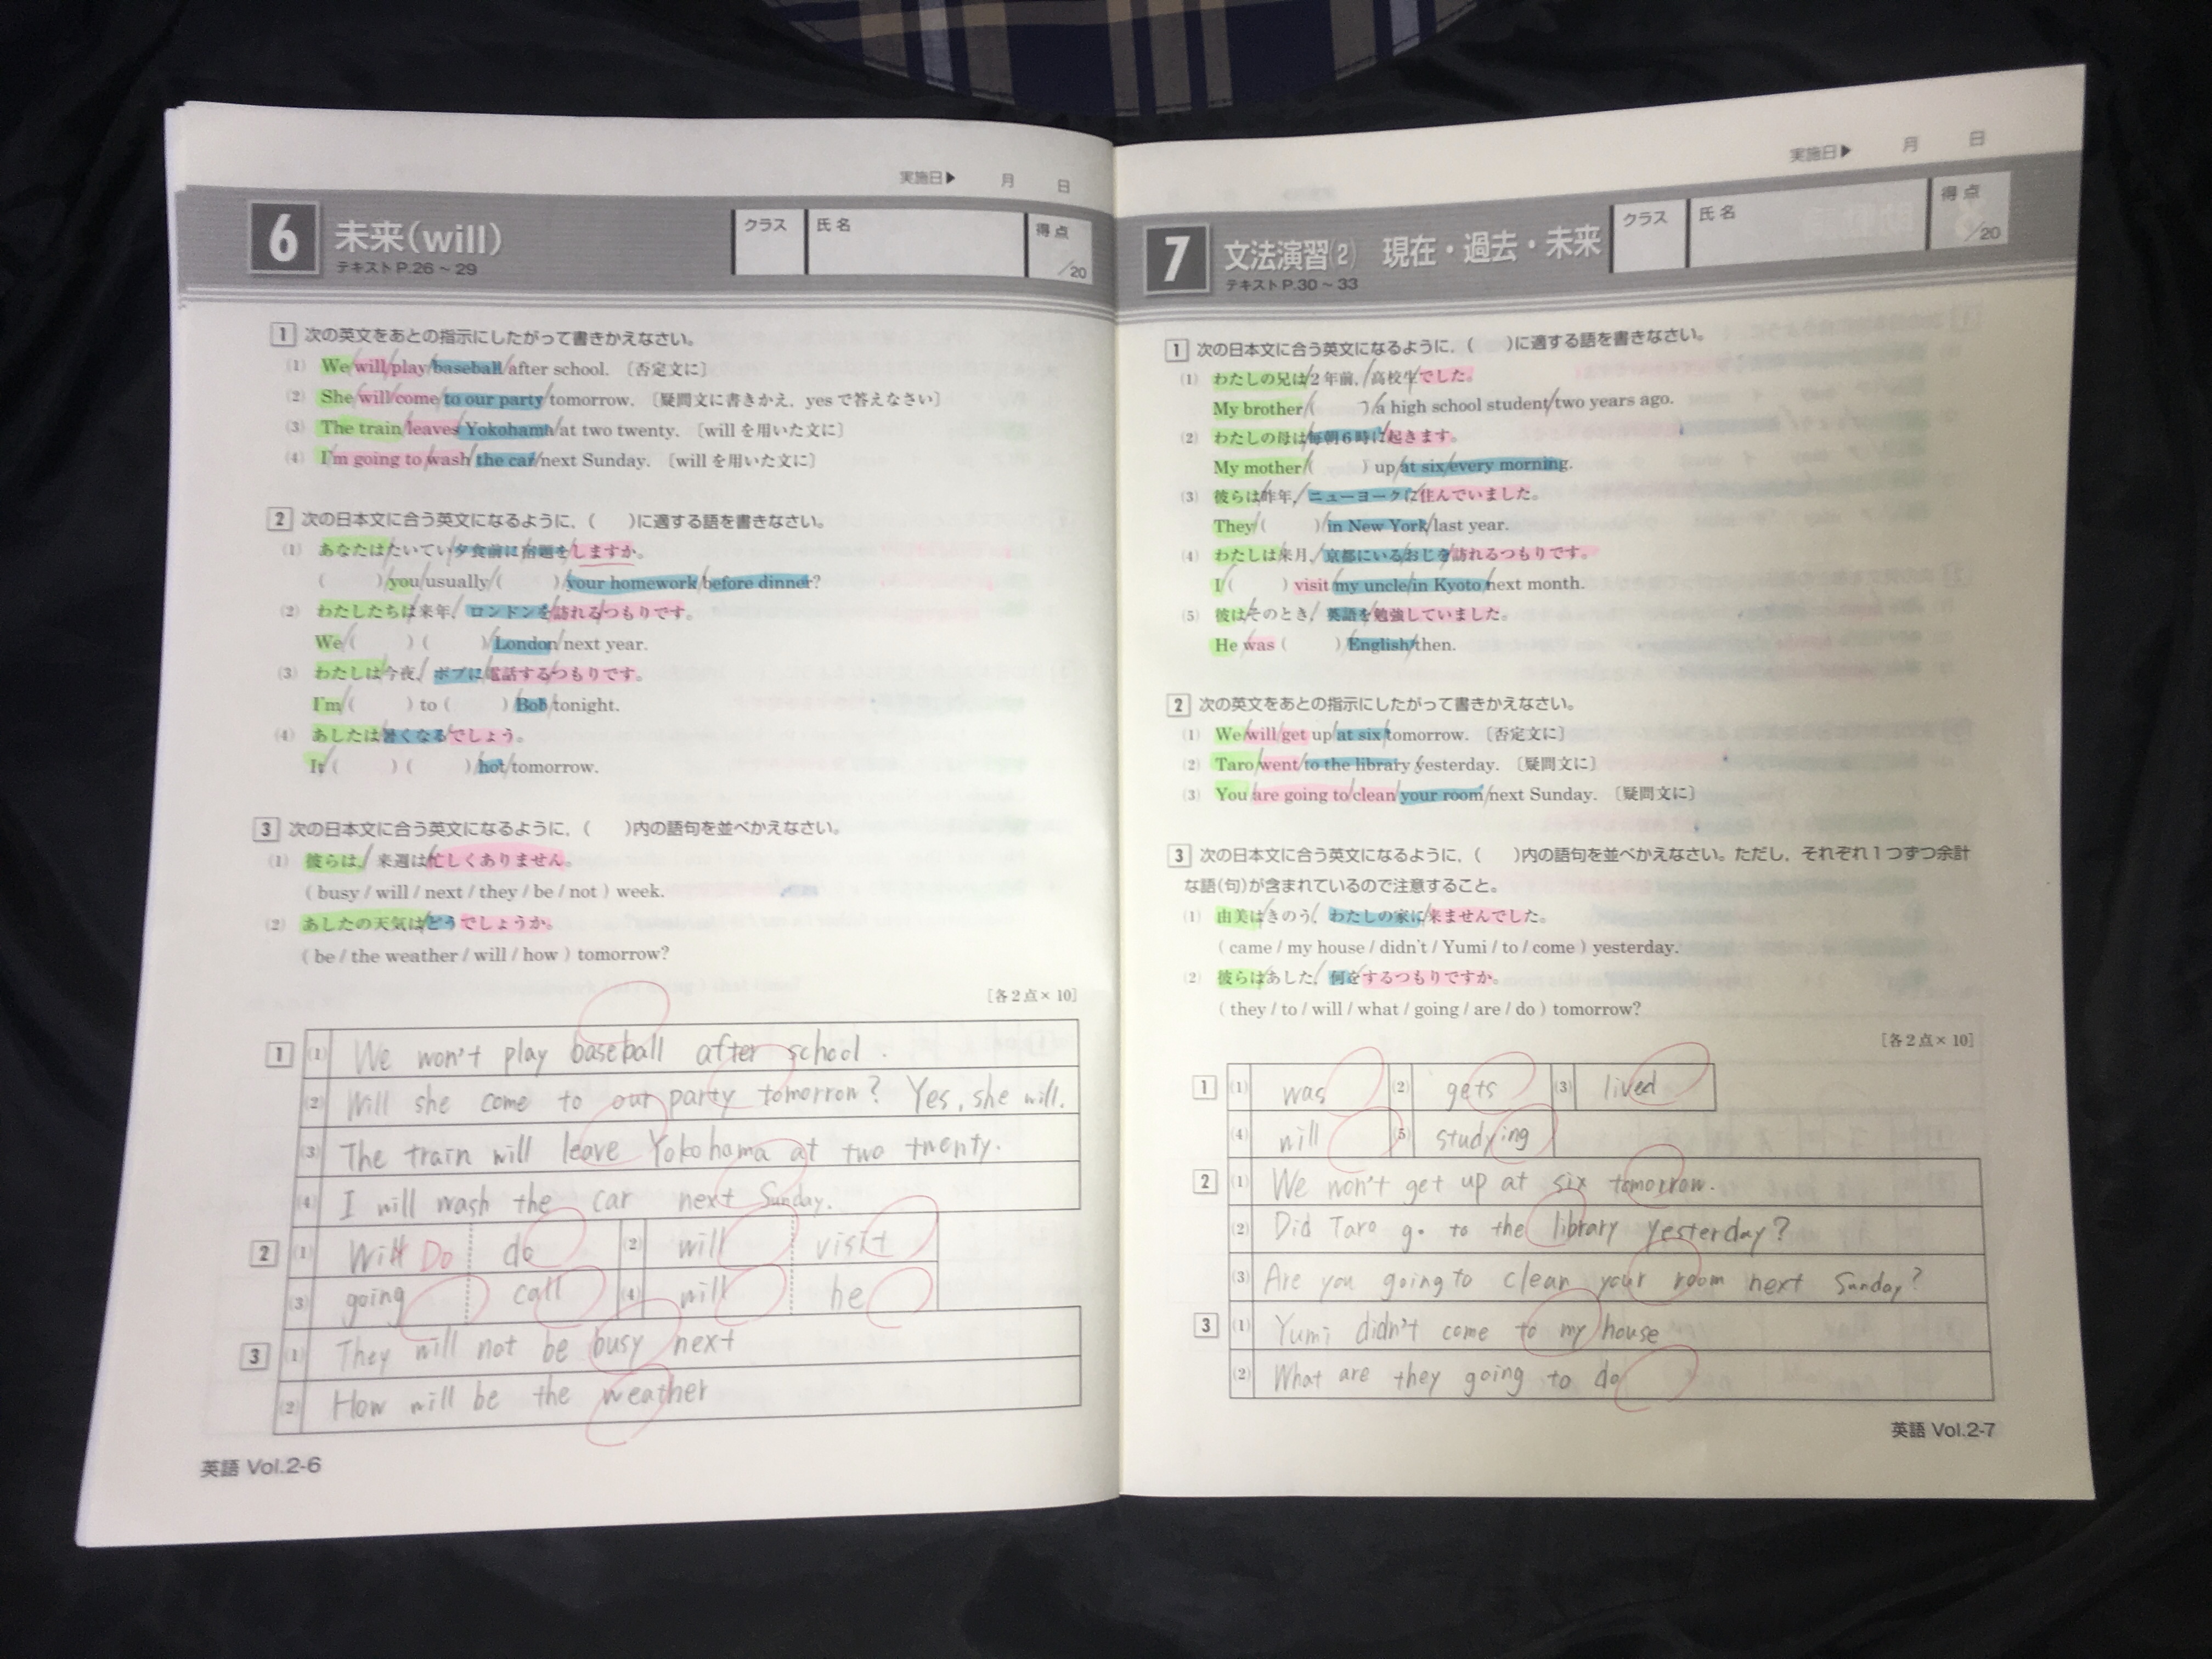 実施日▶ 月 日
6 未来(will)
テキストP.26～29
クラス 氏名 得点 /20
1 次の英文をあとの指示にしたがって書きかえなさい。
(1) We/will/play/baseball/after school. 〔否定文に〕
(2) She/will/come/to our party/tomorrow. 〔疑問文に書きかえ, yesで答えなさい〕
(3) The train/leaves/Yokohama/at two twenty. 〔willを用いた文に〕
(4) I'm going to/wash/the car/next Sunday. 〔willを用いた文に〕
2 次の日本文に合う英文になるように, ( )に適する語を書きなさい。
(1) あなたは/たいてい/夕食前に/宿題を/しますか。
( )/you/usually/( )/your homework/before dinner?
(2) わたしたちは/来年,/ロンドンを/訪れる/つもりです。
We/( ) ( )/London/next year.
(3) わたしは/今夜,/ボブに/電話する/つもりです。
I'm/( ) to ( )/Bob/tonight.
(4) あしたは/暑くなる/でしょう。
It/( ) ( )/hot/tomorrow.
3 次の日本文に合う英文になるように, ( )内の語句を並べかえなさい。
(1) 彼らは,/来週は/忙しくありません。
( busy / will / next / they / be / not ) week.
(2) あしたの天気は/どう/でしょうか。
( be / the weather / will / how ) tomorrow?
[各2点×10]
1 (1) We won't play baseball after school.
(2) Will she come to our party tomorrow? Yes, she will.
(3) The train will leave Yokohama at two twenty.
(4) I will wash the car next Sunday.
2 (1) Will Do do (2) will visit
(3) going call (4) will be
3 (1) They will not be busy next
(2) How will be the weather
英語 Vol.2-6
実施日▶ 月 日
7 文法演習(2) 現在・過去・未来
テキストP.30～33
クラス 氏名 得点 /20
1 次の日本文に合う英文になるように, ( )に適する語を書きなさい。
(1) わたしの兄は/2年前,/高校生/でした。
My brother/( )/a high school student/two years ago.
(2) わたしの母は/毎朝6時に/起きます。
My mother/( ) up/at six/every morning.
(3) 彼らは/昨年,/ニューヨークに/住んでいました。
They/( )/in New York/last year.
(4) わたしは/来月,/京都にいる/おじを/訪れるつもりです。
I/( ) visit/my uncle/in Kyoto/next month.
(5) 彼は/そのとき/英語を/勉強していました。
He was ( )/English/then.
2 次の英文をあとの指示にしたがって書きかえなさい。
(1) We/will/get up/at six/tomorrow. 〔否定文に〕
(2) Taro/went/to the library/yesterday. 〔疑問文に〕
(3) You/are going to/clean/your room/next Sunday. 〔疑問文に〕
3 次の日本文に合う英文になるように, ( )内の語句を並べかえなさい。ただし, それぞれ1つずつ余計
な語(句)が含まれているので注意すること。
(1) 由美は/きのう,/わたしの家に/来ませんでした。
( came / my house / didn't / Yumi / to / come ) yesterday.
(2) 彼らは/あした,/何を/するつもりですか。
( they / to / will / what / going / are / do ) tomorrow?
[各2点×10]
1 (1) was (2) gets (3) lived
(4) will (5) studying
2 (1) We won't get up at six tomorrow.
(2) Did Taro go to the library yesterday?
(3) Are you going to clean your room next Sunday?
3 (1) Yumi didn't come to my house
(2) What are they going to do
英語 Vol.2-7